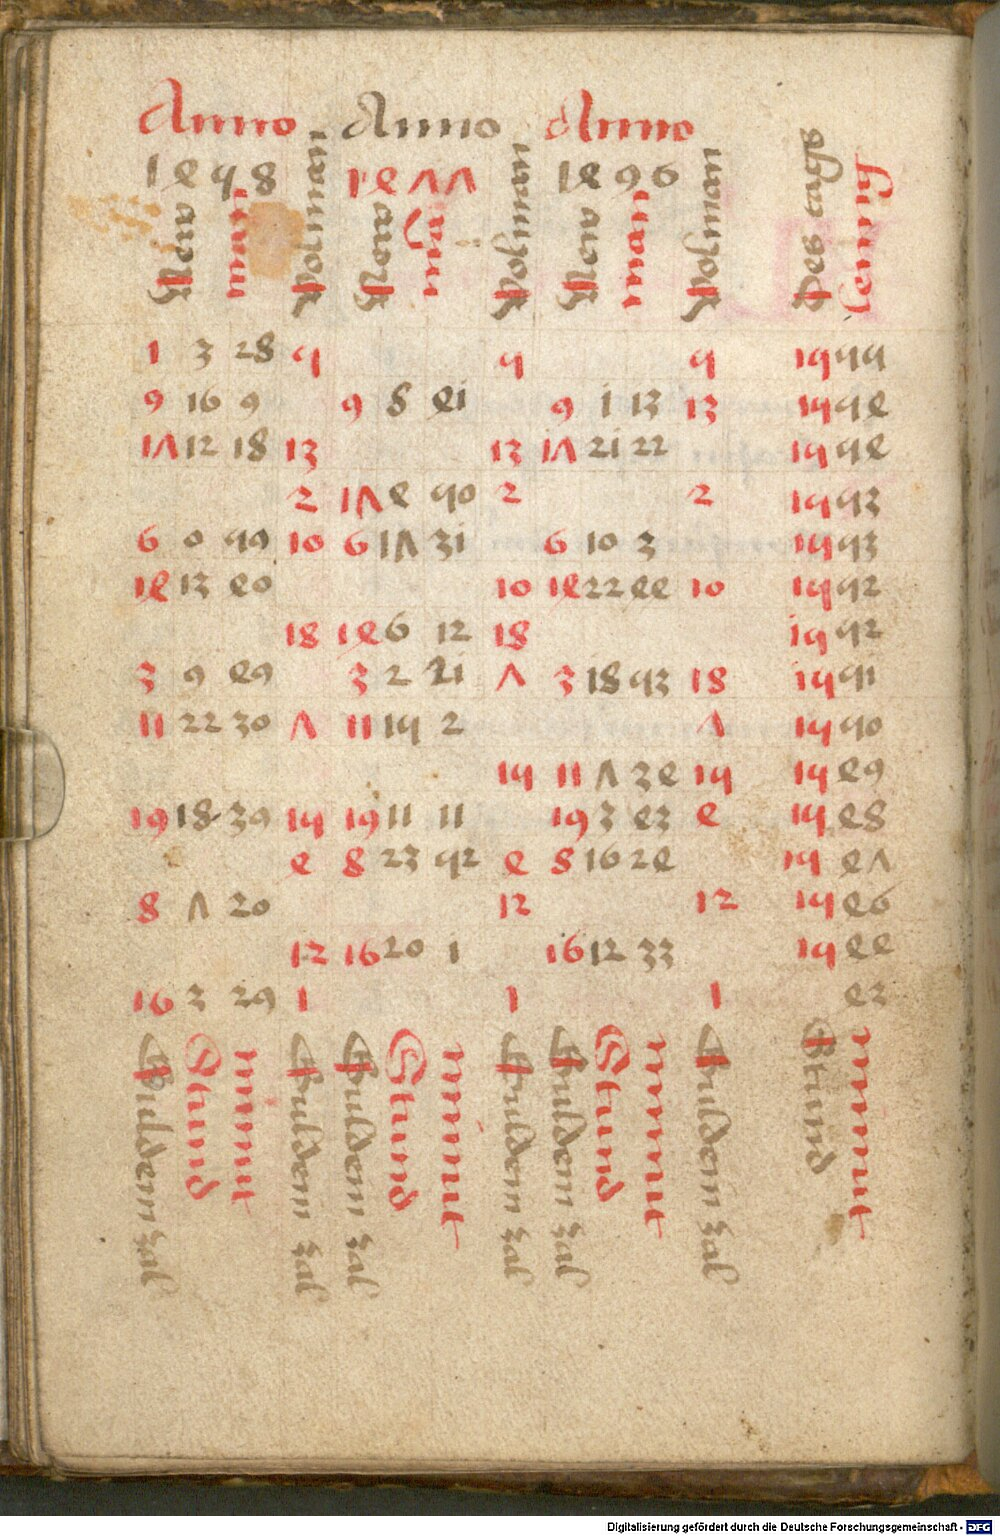 Anno Anno Anno
1458 1477 1496
New man Volman New man Volman New man Volman Des tags lenng
1 3 28 5 5 5 15 55
9 16 9 9 8 41 9 1 13 13 15 54
17 12 18 13 13 17 21 22 15 54
2 17 4 50 2 2 15 53
6 0 59 10 6 17 31 6 10 3 15 53
14 13 40 10 14 22 44 10 15 52
18 14 6 12 18 15 52
3 9 49 3 2 21 7 3 18 53 18 15 51
11 22 30 7 11 15 2 7 15 50
15 11 7 34 15 15 49
19 18 39 15 19 11 11 19 3 43 4 15 48
4 8 23 52 4 8 16 24 15 47
8 7 20 12 12 15 46
12 16 20 1 16 12 33 15 44
16 3 29 1 1 1 43
Guldein zal Stund minut Guldein zal Guldein zal Stund minut Guldein zal Guldein zal Stund minut Guldein zal Stund minut
Digitalisierung gefördert durch die Deutsche Forschungsgemeinschaft - DFG